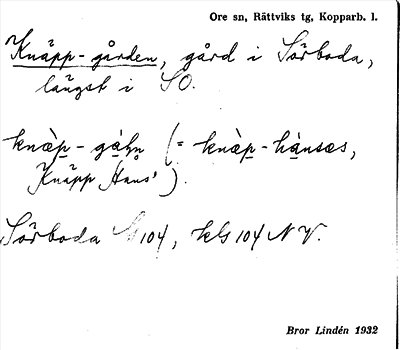 Ore sn, Rättviks tg, Kopparb. l.
Knäpp-gården, gård i Sörboda,
längst i SO.
knæ̀p-gàɳ (= knæ̀p-hànsəs,
Knäpp Hans').
Sörboda 104, kls 104 NV.
Bror Lindén 1932